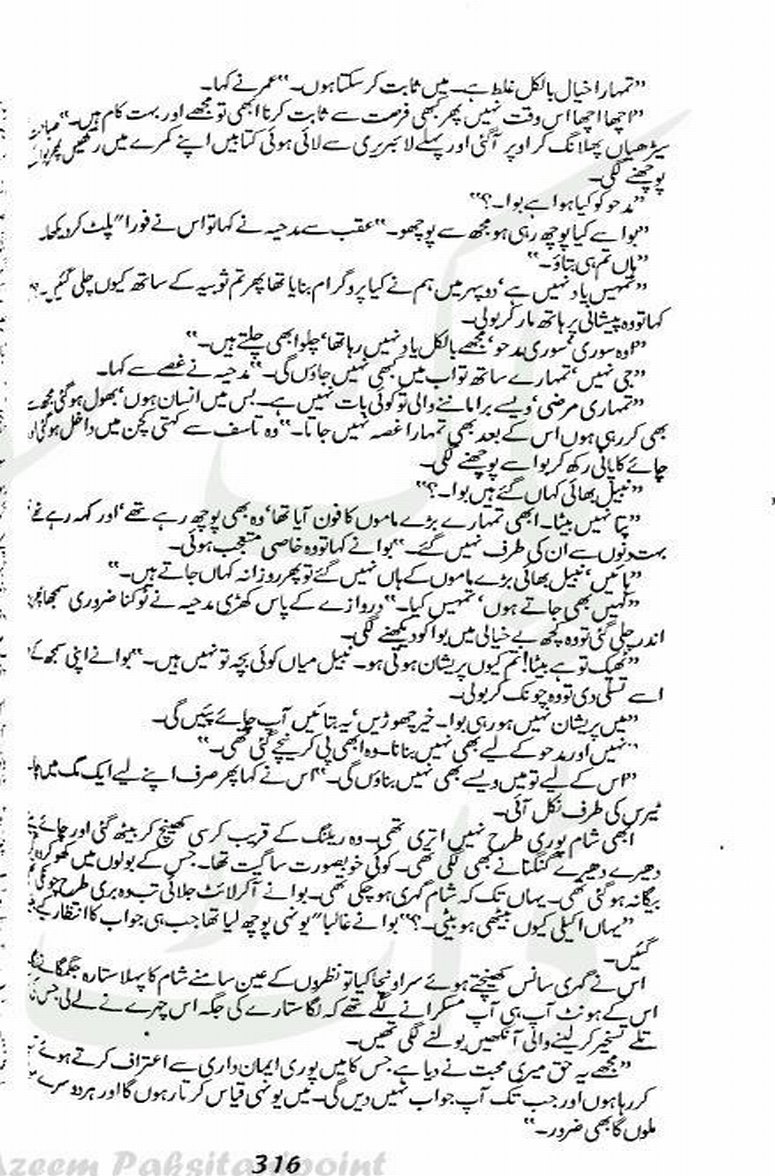 ”تمہارا خیال بالکل غلط ہے۔ میں ثابت کر سکتا ہوں۔“ عمر نے کہا۔
”اچھا اچھا اس وقت نہیں پھر کبھی فرصت سے ثابت کرنا ابھی تو مجھے اور بہت کام ہیں۔“
سیڑھیاں پھلانگ کر اوپر آگئی اور پہلے لائبریری سے لائی ہوئی کتابیں اپنے کمرے میں رکھیں پھر بوا سے
پوچھنے لگی۔
”مدحو کو کیا ہوا ہے بوا۔؟“
”بوا سے کیا پوچھ رہی ہو مجھ سے پوچھو۔“ عقب سے مدحیہ نے کہا تو اس نے فوراً“ پلٹ کر دیکھا۔
”ہاں تم ہی بتاؤ۔“
”تمہیں یاد نہیں ہے‘ دوپہر میں ہم نے کیا پروگرام بنایا تھا پھر تم ثوبیہ کے ساتھ کیوں چلی گئیں۔؟“
کہا تو وہ پیشانی پر ہاتھ مار کر بولی۔
”اوہ سوری‘ سوری مدحو‘ مجھے بالکل یاد نہیں رہا تھا‘ چلو ابھی چلتے ہیں۔“
”جی نہیں‘ تمہارے ساتھ تو اب میں کبھی نہیں جاؤں گی۔“ مدحیہ نے غصے سے کہا۔
”تمہاری مرضی‘ ویسے برا ماننے والی تو کوئی بات نہیں ہے۔ بس میں انسان ہوں‘ بھول ہو گئی مجھ سے
بھی کر رہی ہوں اس کے بعد بھی تمہارا غصہ نہیں جاتا۔“ وہ تاسف سے کہتی کچن میں داخل ہو گئی اور
چائے کا پانی رکھ کر بوا سے پوچھنے لگی۔
”نبیل بھائی کہاں گئے ہیں بوا۔؟“
”پتا نہیں بیٹا۔ ابھی تمہارے بڑے ماموں کا فون آیا تھا‘ وہ بھی پوچھ رہے تھے‘ اور کہہ رہے تھے
بہت دنوں سے ان کی طرف نہیں گئے۔“ بوا نے کہا تو وہ خاصی متعجب ہوئی۔
”ہائیں‘ نبیل بھائی بڑے ماموں کے ہاں نہیں گئے تو پھر روزانہ کہاں جاتے ہیں۔“
”کہیں بھی جاتے ہوں‘ تمہیں کیا۔“ دروازے کے پاس کھڑی مدحیہ نے ٹوکنا ضروری سمجھا پھر
اندر چلی گئی تو وہ کچھ بے خیالی میں بوا کو دیکھنے لگی۔
”ٹھیک تو ہے بیٹا! تم کیوں پریشان ہوتی ہو۔ نبیل میاں کوئی بچہ تو نہیں ہیں۔“ بوا نے اپنی سمجھ کے
اسے تسلی دی تو وہ چونک کر بولی۔
”میں پریشان نہیں ہو رہی بوا۔ خیر چھوڑیں‘ یہ بتائیں آپ چائے پئیں گی۔
”نہیں اور مدحو کے لیے بھی نہیں بنانا۔ وہ ابھی پی کر نیچے گئی تھی۔“
”اس کے لیے تو میں ویسے بھی نہیں بناؤں گی۔“ اس نے کہا پھر صرف اپنے لیے ایک مگ میں
ٹیرس کی طرف نکل آئی۔
ابھی شام پوری طرح نہیں اتری تھی۔ وہ ریلنگ کے قریب کرسی کھینچ کر بیٹھ گئی اور چائے پیتے
دھیرے دھیرے گنگنانے بھی لگی تھی۔ کوئی خوبصورت سا گیت تھا۔ جس کے بولوں میں کھو کر وہ
بیگانہ ہو گئی تھی۔ یہاں تک کہ شام گہری ہو چکی تھی۔ بوا نے آکر لائٹ جلائی تب وہ بری طرح چونکی
”یہاں اکیلی کیوں بیٹھی ہو بیٹی۔؟“ بوا نے غالباً“ یونہی پوچھ لیا تھا جب ہی جواب کا انتظار کیے
گئیں۔
اس نے گہری سانس کھینچتے ہوئے سر اونچا کیا تو نظروں کے عین سامنے شام کا پہلا ستارہ جگمگانے لگا
اس کے ہونٹ آپ ہی آپ مسکرانے لگے تھے کہ لگا ستارے کی جگہ اس چہرے نے لے لی جس
تلے تسخیر کر لینے والی آنکھیں بولنے لگی تھیں۔
”مجھے یہ حق میری محبت نے دیا ہے جس کا میں پوری ایمان داری سے اعتراف کرتے ہوئے
کر رہا ہوں اور جب تک آپ جواب نہیں دیں گی۔ میں یونہی قیاس کرتا رہوں گا اور ہر دوسرے
ملوں گا بھی ضرور۔“
316
Azeem Paksitanipoint